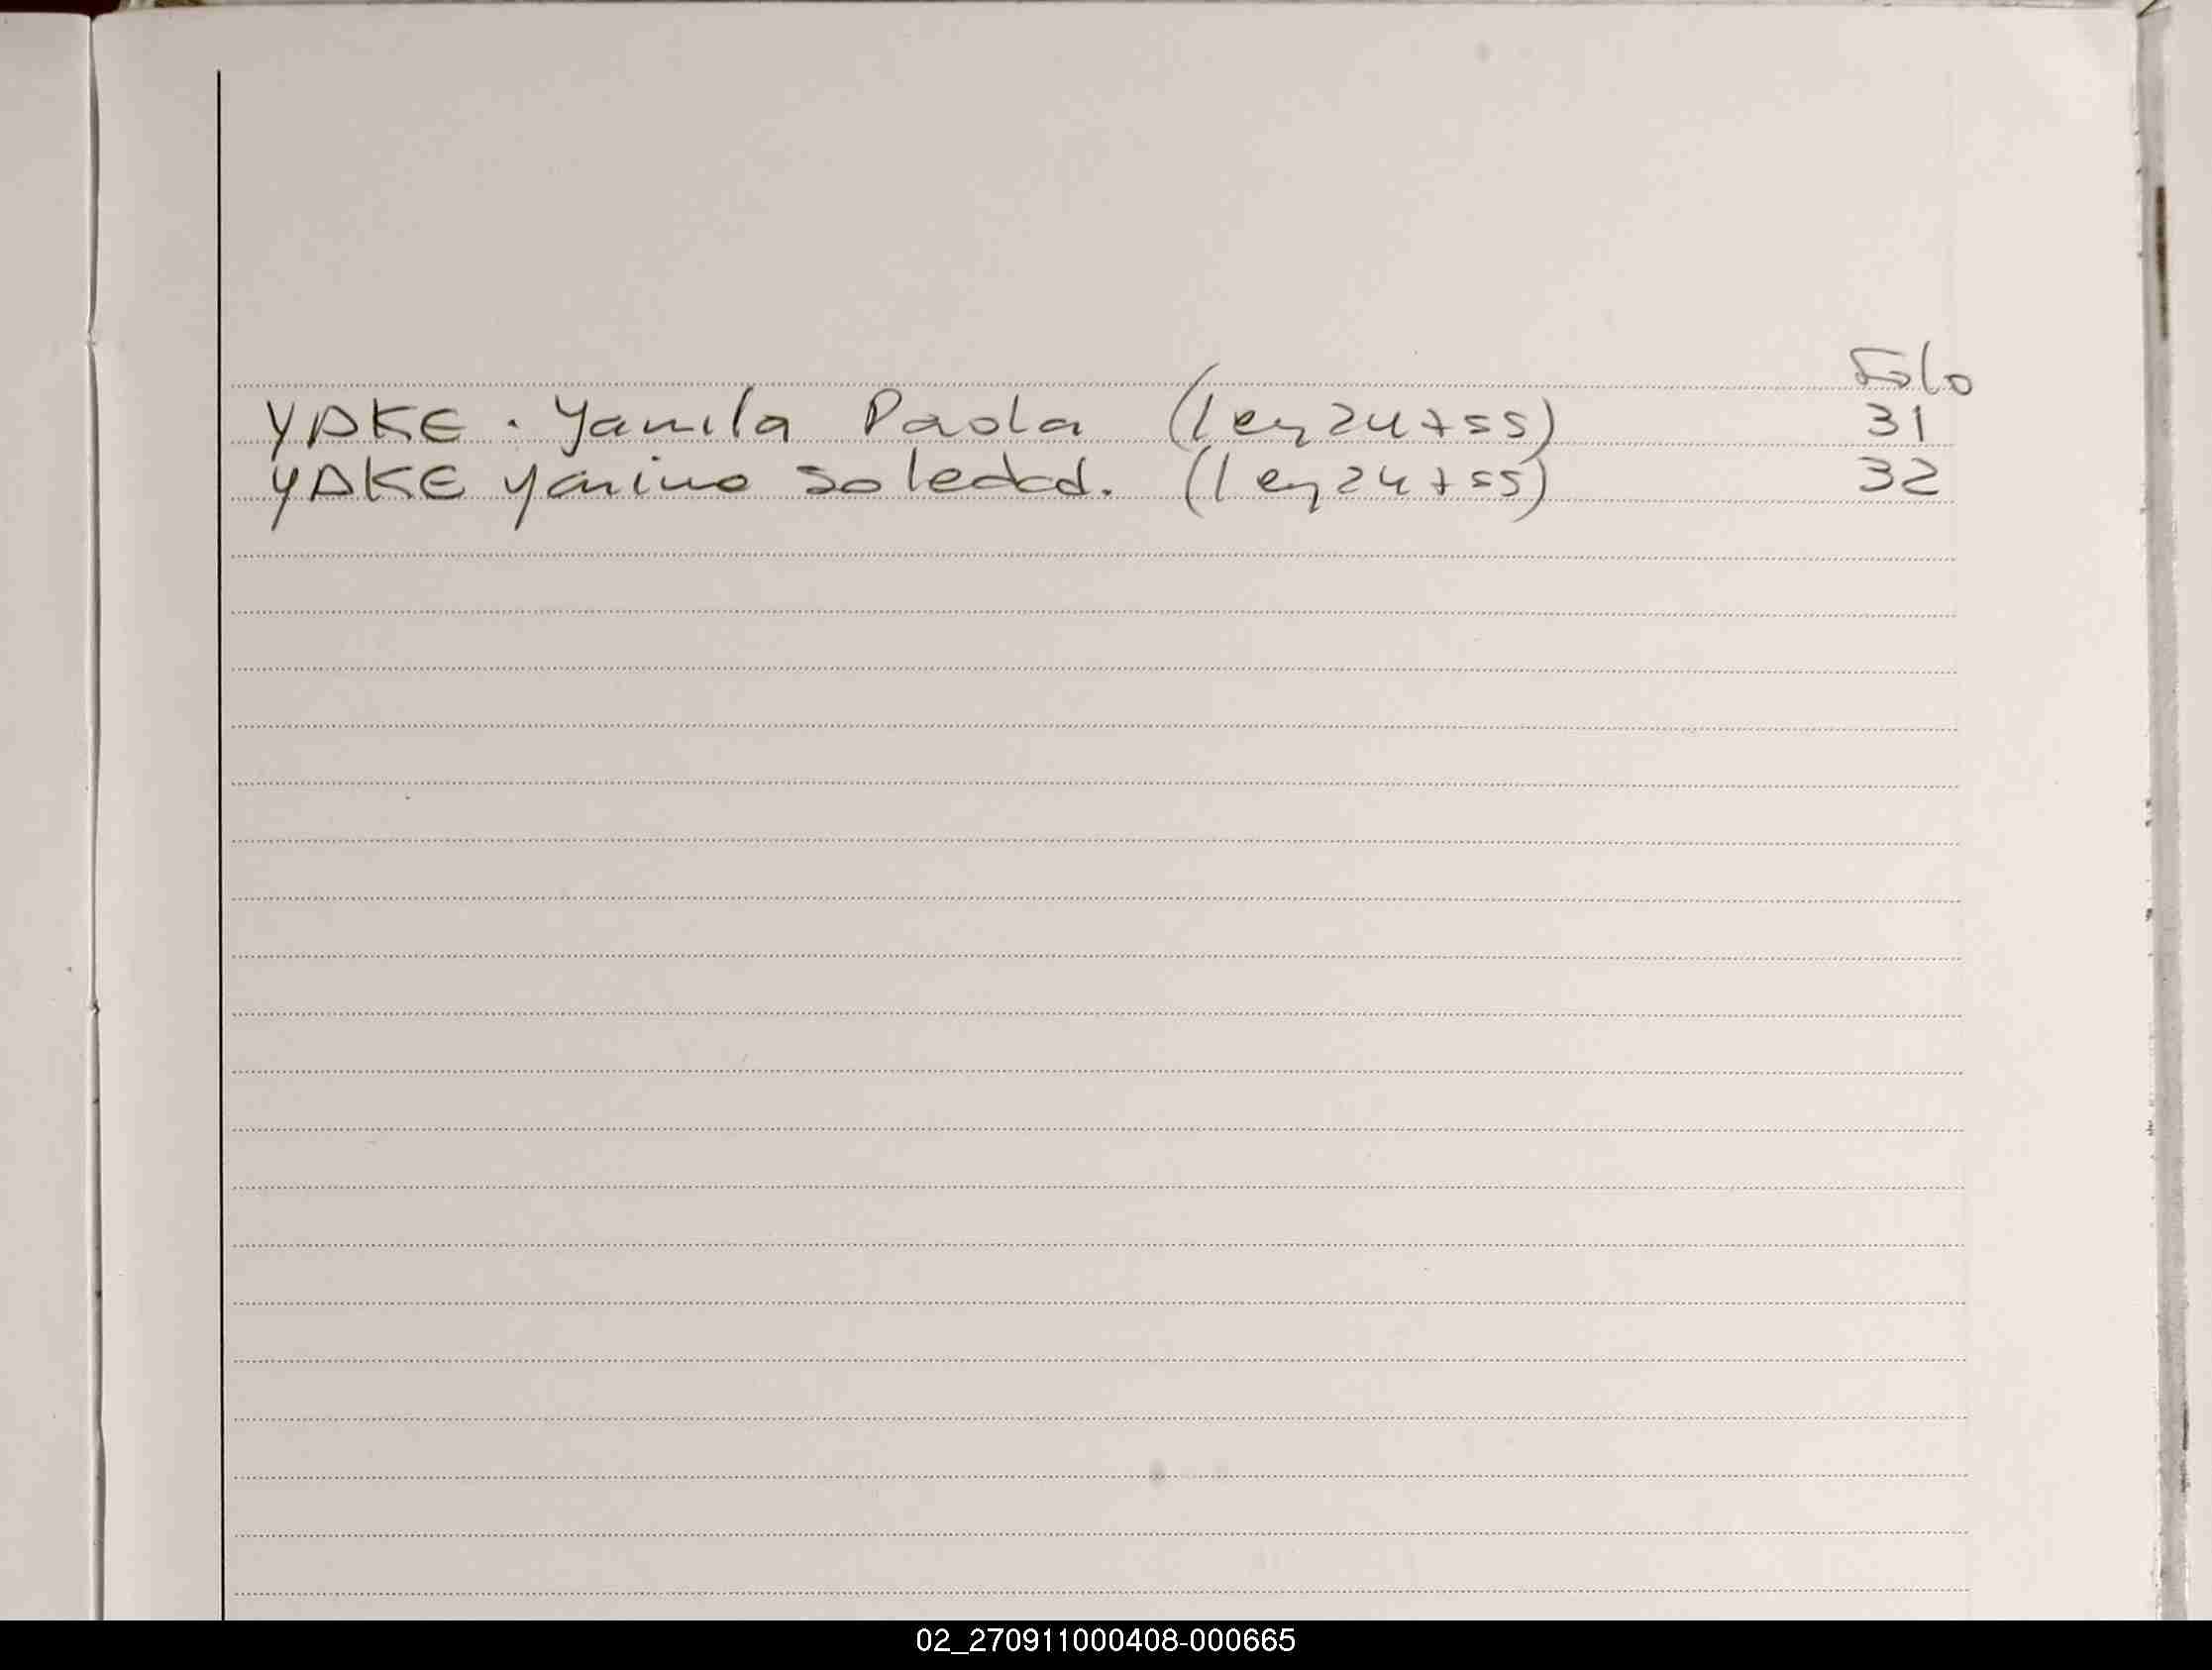 Folo
YAKE. Yamila Paola (ley 24755) 31
YAKE yanina soledad. (ley 24755) 32
02_270911000408-000665